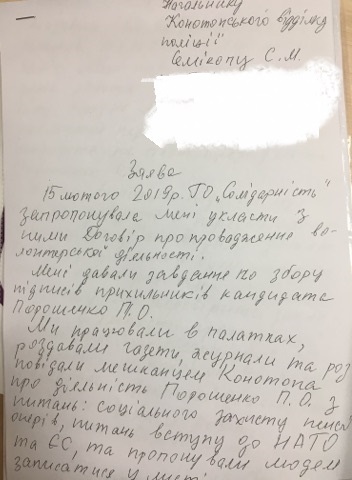 Начальнику
Конотопського відділку
поліції
Семікопу С.М.
Заява
15 лютого 2019р. ГО „Солідарність"
запропонувала мені укласти з
ними Договір про провадження во-
лонтерської діяльності.
Мені давали завдання по збору
підписів прихильників кандидата
Порошенко П.О.
Ми працювали в палатках,
роздавали газети, журнали та роз
повідали мешканцям Конотопа
про діяльність Порошенко П.О. з
питань: соціального захисту пенсі
онерів, питань вступу до НАТО
та ЄС, та пропонували людям
записатися у